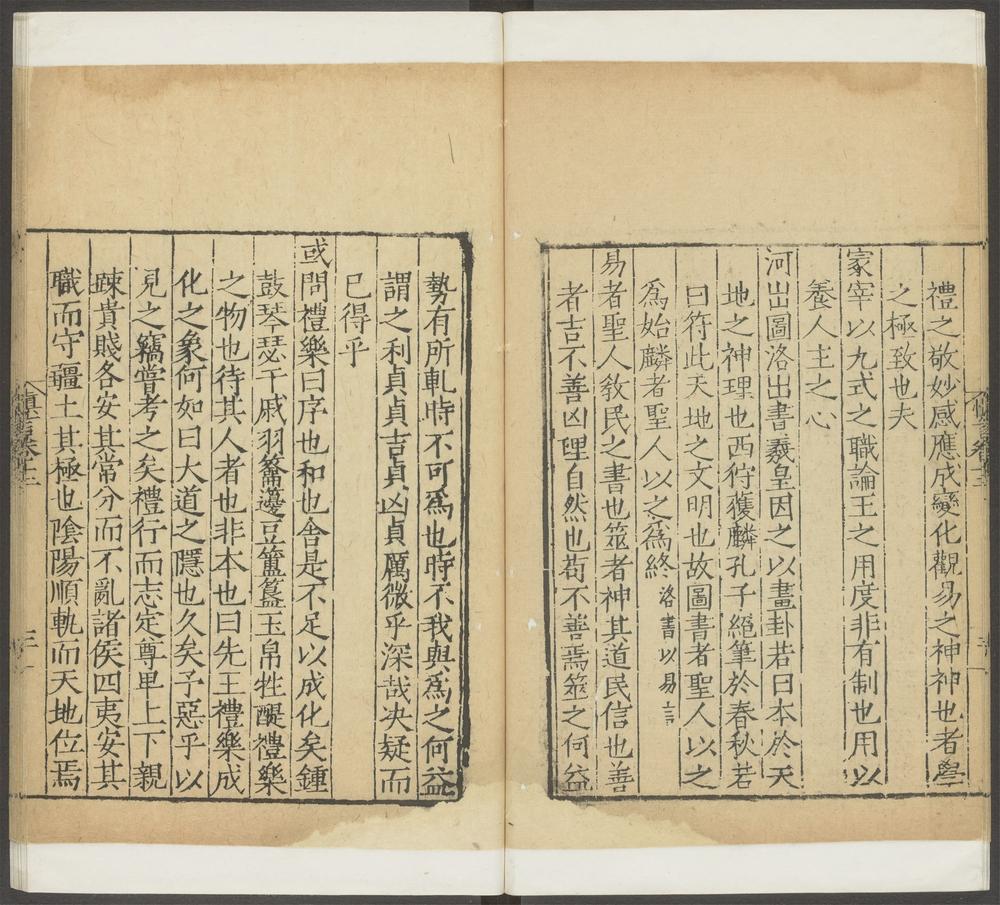 禮之敬妙感應成變化觀易之神神也者學
之極致也夫
冢宰以九式之職論王之用度非有制也用以
養人主之心
河出圖洛出書羲皇因之以畫卦若曰本於天
地之神理也西狩獲麟孔子絕筆於春秋若
曰符此天地之文明也故圖書者聖人以之
爲始麟者聖人以之爲終 洛書以易言
易者聖人敎民之書也筮者神其道民信也善
者吉不善凶理自然也苟不善焉筮之何益
勢有所軋時不可爲也時不我與爲之何益
謂之利貞貞吉貞凶貞厲微乎深哉決疑而
已得乎
或問禮樂曰序也和也舍是不足以成化矣鍾
鼓琴瑟干戚羽籥籩豆簠簋玉帛牲醍禮樂
之物也待其人者也非本也曰先王禮樂成
化之象何如曰大道之隱也久矣予惡乎以
見之竊嘗考之矣禮行而志定尊卑上下親
踈貴賤各安其常分而不亂諸侯四夷安其
職而守疆土其極也陰陽順軌而天地位焉
三